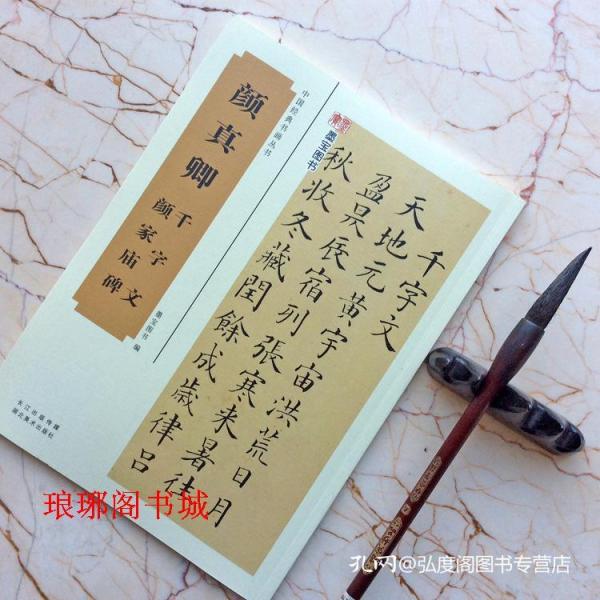 中国经典书画丛书
颜真卿
千字文
颜家庙碑
墨宝图书 编
长江出版传媒
湖北美术出版社
墨宝图书
千字文
天地元黄宇宙洪荒日月
盈昃辰宿列張寒来暑往
秋收冬藏閏餘成歲律吕
琅琊阁书城
孔网@弘度阁图书专营店